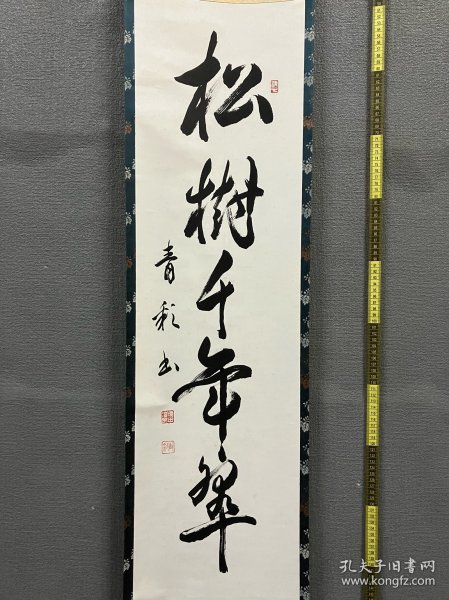 松樹千年翠
青彩书
孔夫子旧书网
www.kongfz.com